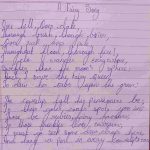 A Fairy Song
Over hill, over dale,
Through bush, through brier,
Over park, over pale,
Through flood, through fire!
I do wander everywhere,
Swifter than the moon's sphere;
And I serve the fairy queen,
To dew her orbs upon the green;
The cowslips tall her pensioners be;
In their gold coats spots you see;
Those be rubies, fairy favours;
In those freckles live their savours;
I must go seek some dew drops here,
And hang a pearl in every cowslip's ear.